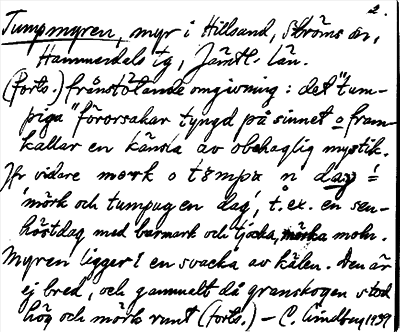 2.
Tumpmyren, myr i Hillsand, Ströms sn,
Hammerdals tg, Jämtl. län.
(forts.) frånstötande omgivning: det "tum-
piga" förorsakar tyngd på sinnet o fram-
kallar en känsla av obehaglig mystik.
Jfr vidare mork o tompu n dag =
'mörk och tumpug en dag', t. ex. en sen-
höstdag med barmark och tjocka, mörka moln.
Myren ligger i en svacka av kälen. Den är
ej bred, och gammelt då granskogen stod
hög och mörk runt (forts.) – C. Lindtag 1939